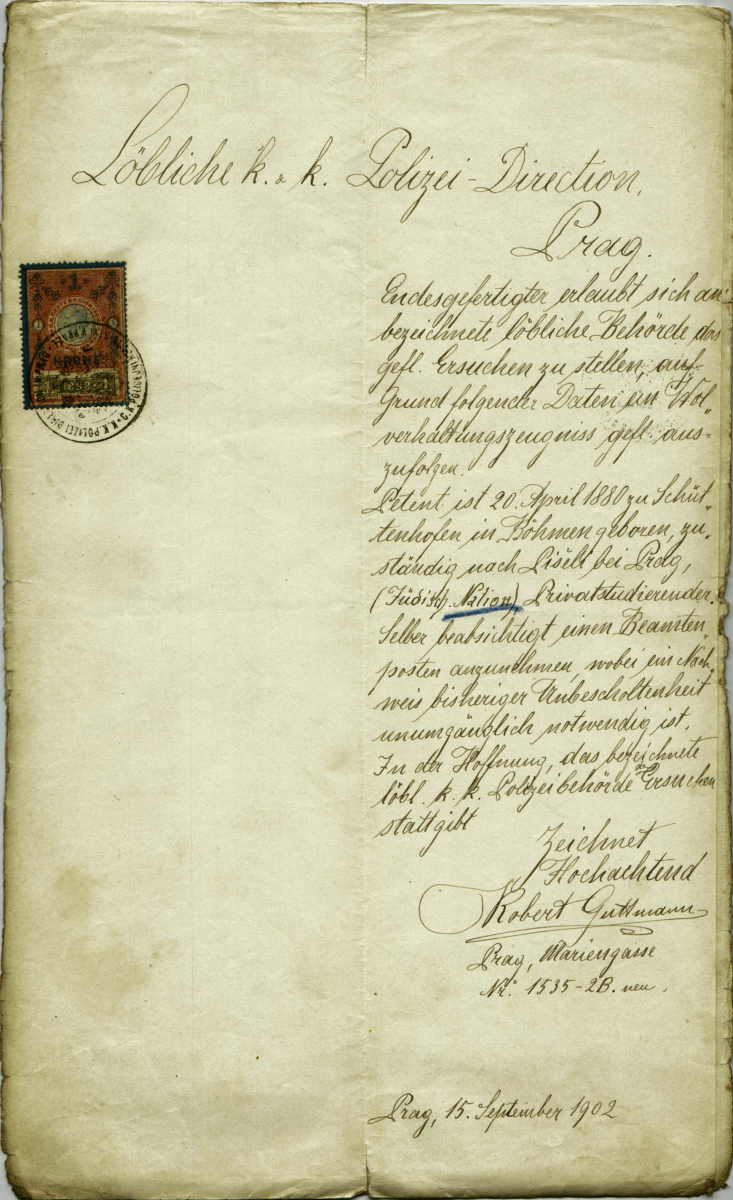 Löbliche k. k. Polizei-Direction,
Prag.
Endesgefertigter erlaubt sich an
bezeichnete löbliche Behörde das
gefl. Ersuchen zu stellen, auf
Grund folgender Daten ein Wol„
verhaltungszeugniss gefl. aus-
zufolgen.
Petent ist 20. April 1880 zu Schüt„
tenhofen in Böhmen geboren, zu„
ständig nach Lišeli bei Prag,
(Jüdisch. Nation) Privatstudierender.
Selber beabsichtigt einen Beamten„
posten anzunehmen, wobei ein Nach„
weis bisheriger Unbescholtenheit
unumgänglich notwendig ist.
In der Hoffnung, das bezeichnete
löbl. k. k. Polizeibehörde das Ersuchen
stattgibt
Zeichnet
Hochachtend
Robert Guttmann
Prag, Mariengasse
Nr. 1535-2B. neu.
Prag, 15. September 1902
1
K. K. POLIZEI